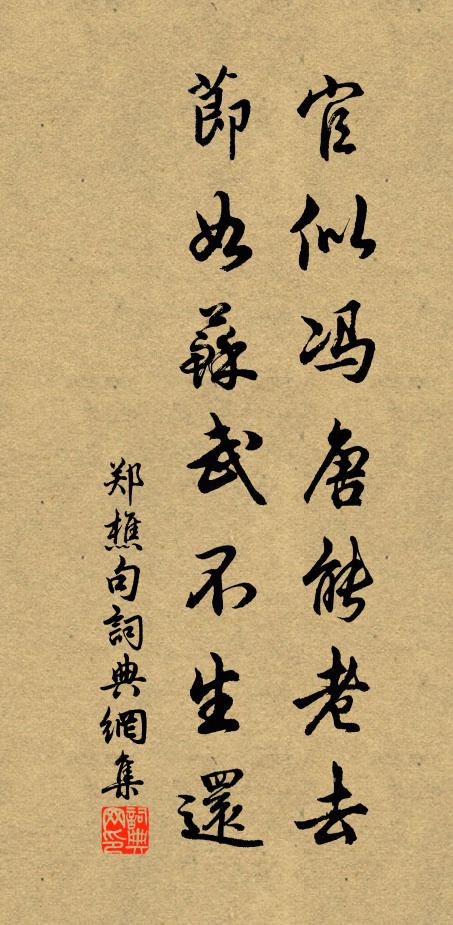 官似冯唐能老去
節如蘇武不生還
郑樵句詞典網集
詞典網印